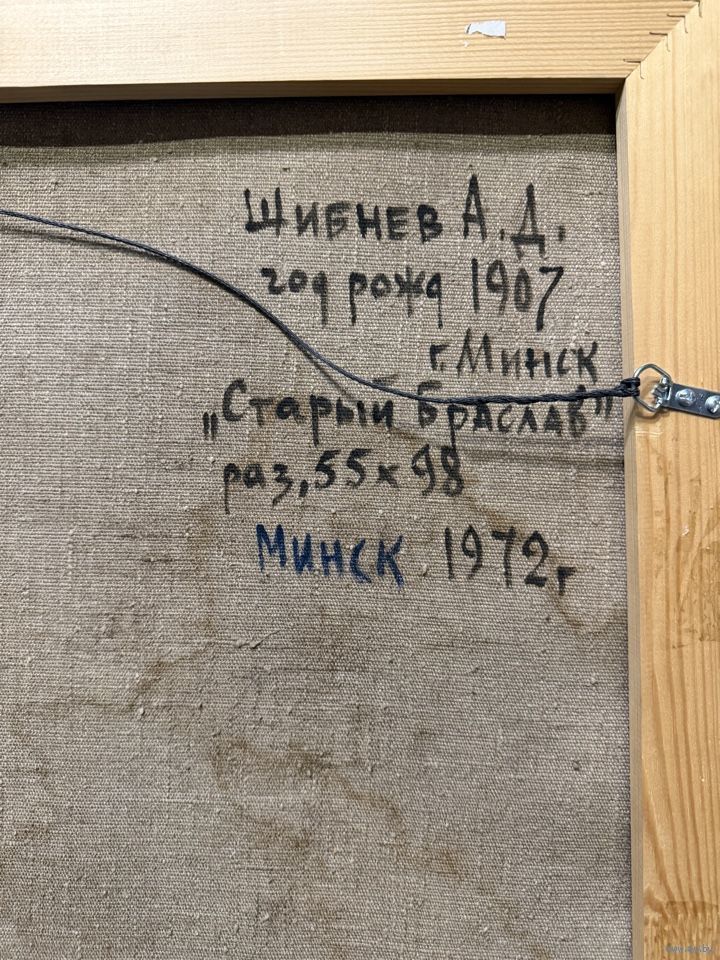 Шибнев А.Д.
год рожд 1907
г. Минск
„Старый Браслав"
раз, 55х98
Минск 1972г